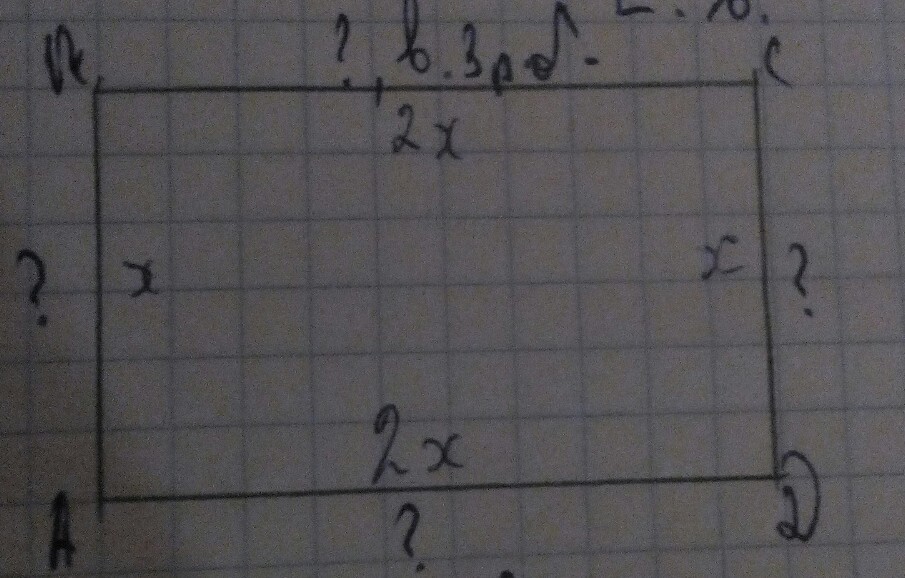 ? в.3рад.
C
2x
? x x ?
2x
A ? D